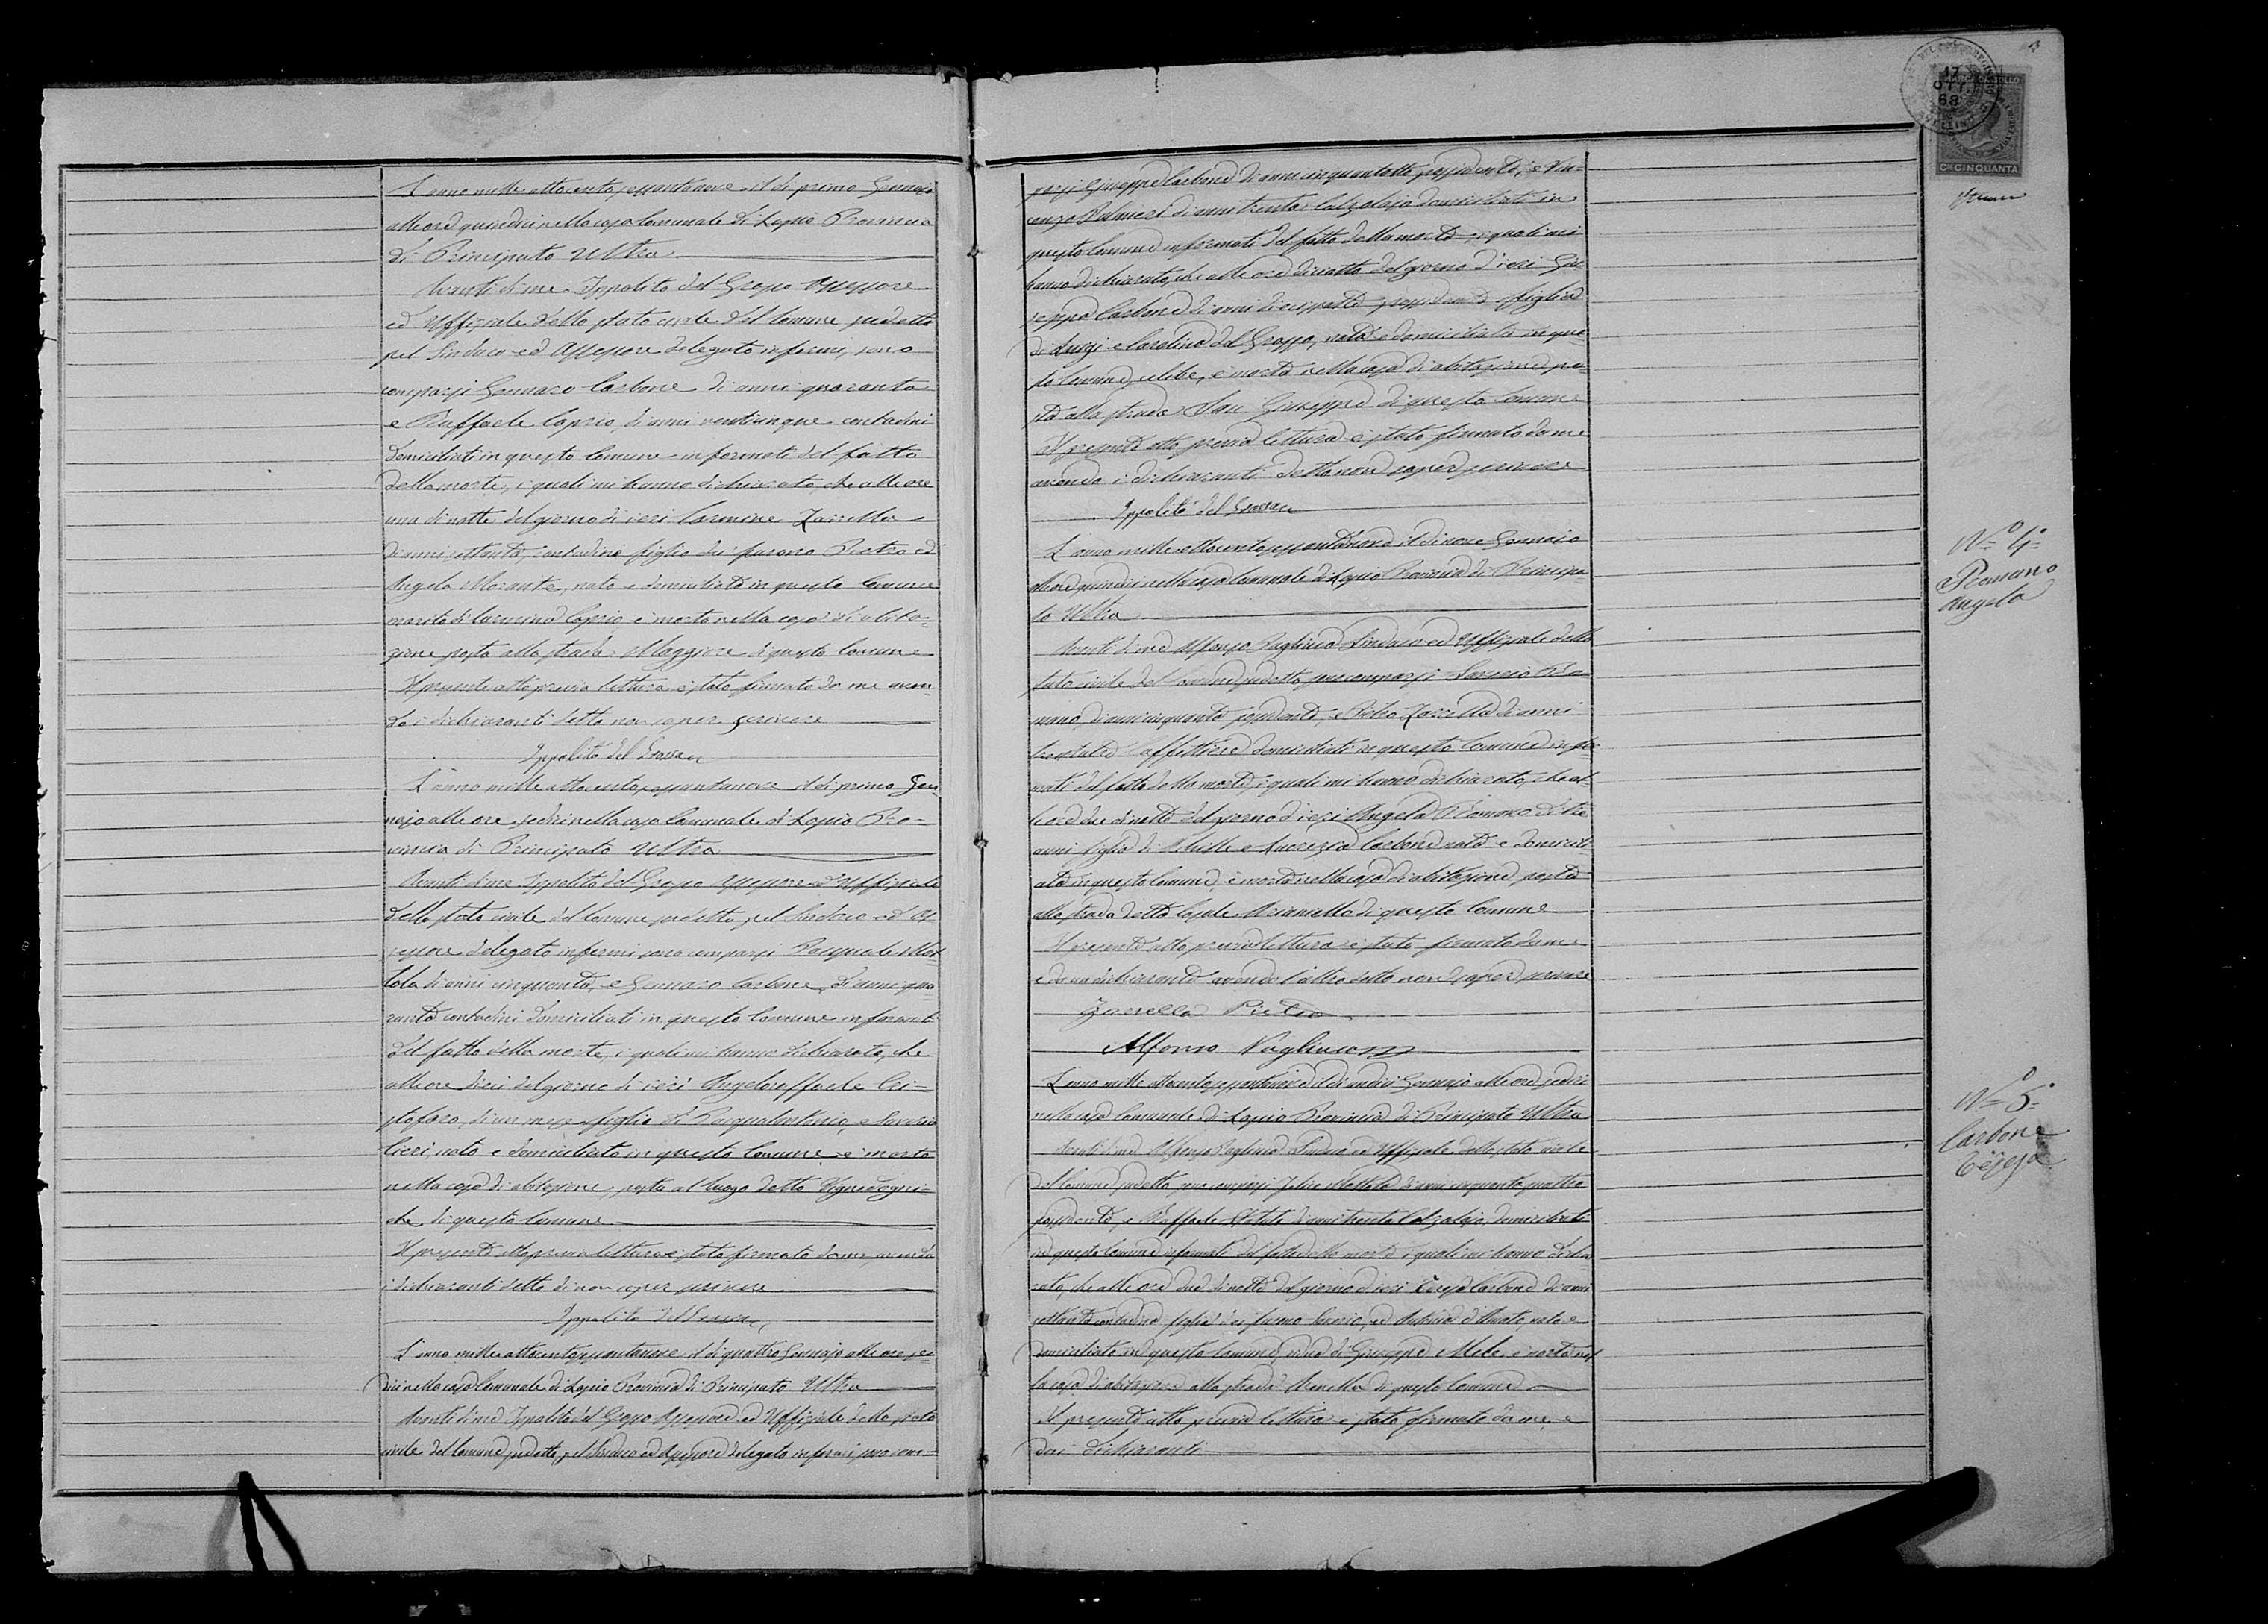 L'anno mille ottocento sessantanove il dì primo Gennajo
alle ore quindici nella casa Comunale di Lapio Provincia
di Principato Ultra
Avanti di me Ippolito del Grosso Assessore
ed Uffiziale dello stato civile del Comune sudetto
pel Sindaco ed Assessore delegato infermi, sono
comparsi Gennaro Carbone di anni quaranta
e Raffaele Caprio di anni venticinque contadini
domiciliati in questo Comune informati del fatto
della morte, i quali mi hanno dichiarato, che alle ore
una di notte del giorno di ieri Carmine Zarrella
di anni settanta, contadino figlio dei furono Pietro ed
Angela Morante, nato e domiciliato in questo Comune
marito di Carmina Caprio, è morto nella casa di abita=
zione posta alla strada Maggiore di questo Comune
Il presente atto previa lettura è stato firmato da me aven=
do i dichiaranti detto non saper scrivere
Ippolito del Grosso
L'anno mille ottocento sessantanove il dì primo Gen=
najo alle ore sedici nella casa Comunale di Lapio Pro=
vincia di Principato Ultra
Avanti di me Ippolito del Grosso Assessore ed Uffiziale
dello stato civile del Comune sudetto pel Sindaco ed As=
sessore delegato infermi sono comparsi Pasquale Mot=
tola di anni cinquanta, e Gennaro Carbone, di anni qua
ranta contadini domiciliati in questo Comune informati
del fatto della morte, i quali mi hanno dichiarato, che
alle ore dieci del giorno di ieri Angeloraffaele Cri=
stofaro, di un mese figlio di Pasqualantonio, e Saveria
nato e domiciliato in questo Comune, è morto
nella casa di abitazione, posta al luogo detto
di questo Comune
Il presente atto previa lettura è stato firmato da me, avendo
i dichiaranti detto di non saper scrivere
Ippolito del Grosso
L'anno mille ottocento sessantanove il dì quattro Gennajo alle ore se=
dici nella casa Comunale di Lapio Provincia di Principato Ultra
Avanti di me Ippolito del Grosso Assessore ed Uffiziale dello stato
civile del Comune sudetto, pel Sindaco ed Assessore delegato infermi sono com=
parsi Giuseppe Carbone di anni cinquantotto possidente, e Vin=
cenzo Palmieri di anni trenta Calzolajo domiciliati in
questo Comune informati del fatto della morte, i quali mi
hanno dichiarato, che alle ore diciotto del giorno di ieri Giu
seppe Carbone di anni diciassette possidente figlio
di Luigi e Carolina del Grosso, nato e domiciliato in que
sto Comune, celibe, è morto nella casa di abitazione po=
sta alla strada San Giuseppe di questo Comune
Il presente atto previa lettura è stato firmato da me
avendo i dichiaranti detto non saper scrivere
Ippolito del Grosso
L'anno mille ottocento sessantanove il dì nove Gennajo
alle ore quindici nella casa Comunale di Lapio Provincia di Principa
to Ultra
Avanti di me Alfonso Pagliuca Sindaco ed Uffiziale dello
stato civile del Comune sudetto sono comparsi Saverio Ro
mano, di anni cinquanta possidente, e Pietro Zarrella di anni
trentatre Caffettiere domiciliati in questo Comune infor
mati del fatto della morte, i quali mi hanno dichiarato, che al=
le ore due di notte del giorno di ieri Angela Romano di tre
anni figlia di Achille e Lucrezia Carbone nata e domicili
ata in questo Comune, è morta nella casa di abitazione posta
alla strada detta Casale Arianiello di questo Comune
Il presente atto previa lettura è stato firmato da me
e da un dichiarante avendo l'altro detto non saper scrivere
Zarrella Pietro
Alfonso Pagliuca
L'anno mille ottocento sessantanove il dì undici Gennajo alle ore sedici
nella casa Comunale di Lapio Provincia di Principato Ultra
Avanti di me Alfonso Pagliuca Sindaco ed Uffiziale dello stato civile
del Comune sudetto sono comparsi Felice Mottola di anni cinquanta quattro
possidente, e Raffaele di anni trenta Calzolajo, domiciliati
in questo Comune informati del fatto della morte i quali mi hanno dichia
rato, che alle ore due di notte del giorno di ieri Teresa Carbone di anni
settanta contadina figlia dei furono ed d'Amato, nata e
domiciliata in questo Comune, vedova di Giuseppe Mele è morta nel
la casa di abitazione alla strada di questo Comune
Il presente atto previa lettura è stato firmato da me e
dai dichiaranti
17
OTT.
68
AVELLINO
MARCA DA BOLLO
Cmi CINQUANTA
No 4=
Romano
Angela
No 5=
Carbone
Teresa